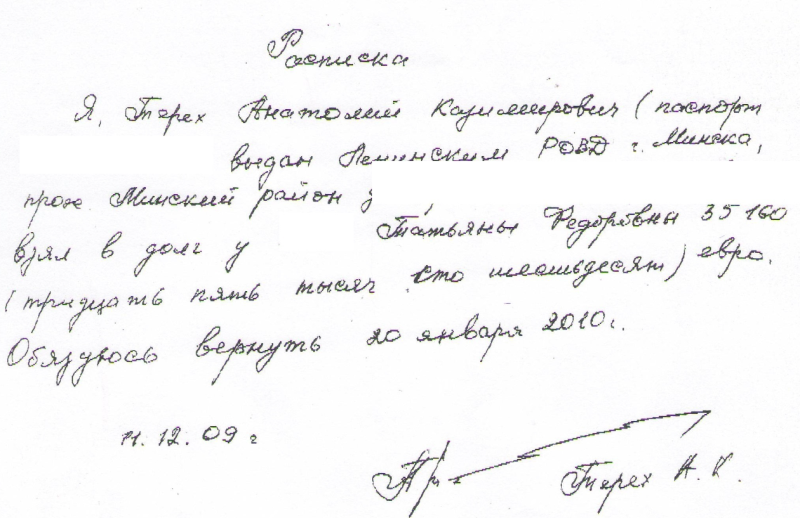 Расписка
Я, Терех Анатолий Казимирович (паспорт
выдан Ленинским РОВД г. Минска,
прож. Минский район
взял в долг у Татьяны Федоровны 35 160
(тридцать пять тысяч сто шестьдесят) евро.
Обязуюсь вернуть 20 января 2010г.
11.12.09 г
Терех А. К.